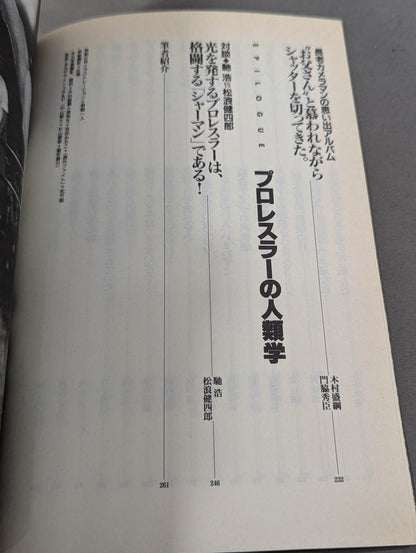 最長老カメラマンの思い出アルバム
“お父さん”と慕われながら
シャッターを切ってきた。
木村盛綱
門脇秀臣
232
EPILOGUE
プロレスラーの人類学
対談●馳 浩VS松浪健四郎
光を発するプロレスラーは、
格闘する「シャーマン」である!
馳 浩
松浪健四郎
246
筆者紹介
261